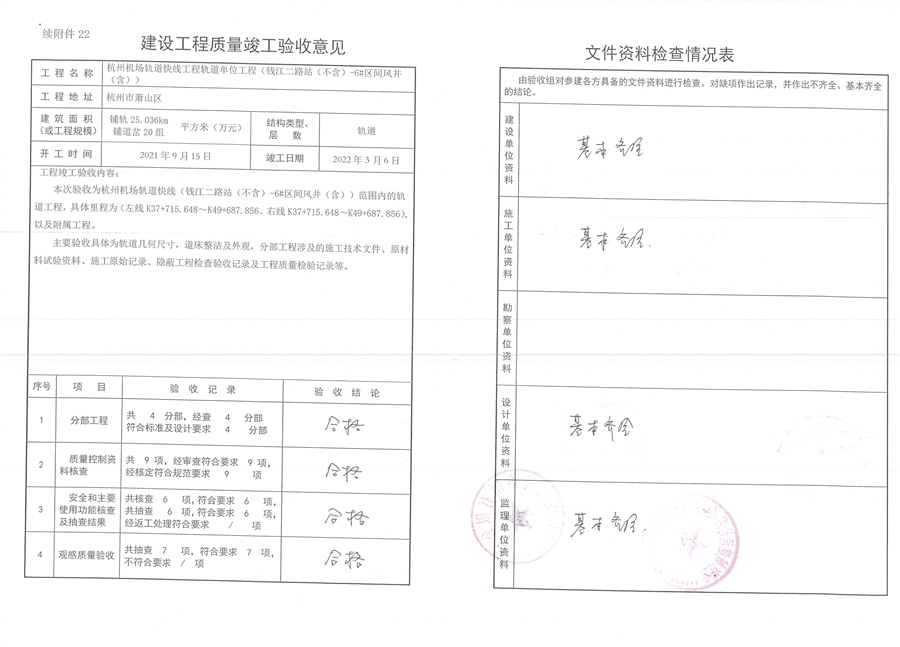 续附件 22
建设工程质量竣工验收意见
工 程 名 称
杭州机场轨道快线工程轨道单位工程（钱江二路站（不含）-6#区间风井
（含））
工 程 地 址
杭州市萧山区
建 筑 面 积
（或工程规模）
铺轨 25.036km
铺道岔 20 组
平方米（万元）
结构类型、
层 数
轨道
开 工 时 间
2021 年 9 月 15 日
竣工日期
2022 年 3 月 6 日
工程竣工验收内容：
本次验收为杭州机场轨道快线（钱江二路站（不含）-6#区间风井（含））范围内的轨
道工程，具体里程为（左线 K37+715.648～K49+687.856、右线 K37+715.648～K49+687.856），
以及附属工程。
主要验收具体为轨道几何尺寸，道床整洁及外观，分部工程涉及的施工技术文件、原材
料试验资料、施工原始记录、隐蔽工程检查验收记录及工程质量检验记录等。
序号
项 目
验 收 记 录
验 收 结 论
1
分部工程
共 4 分部，经查 4 分部
符合标准及设计要求 4 分部
合格
2
质量控制资
料核查
共 9 项，经审查符合要求 9 项，
经核定符合规范要求 9 项
合格
3
安全和主要
使用功能核查
及抽查结果
共核查 6 项，符合要求 6 项，
共抽查 6 项，符合要求 6 项，
经返工处理符合要求 / 项
合格
4
观感质量验收
共抽查 7 项，符合要求 7 项，
不符合要求 / 项
合格
文件资料检查情况表
由验收组对参建各方具备的文件资料进行检查。对缺项作出记录，并作出不齐全、基本齐全
的结论。
建设单位资料
基本齐全
施工单位资料
基本齐全.
勘察单位资料
设计单位资料
基本齐全
监理单位资料
基本齐全.